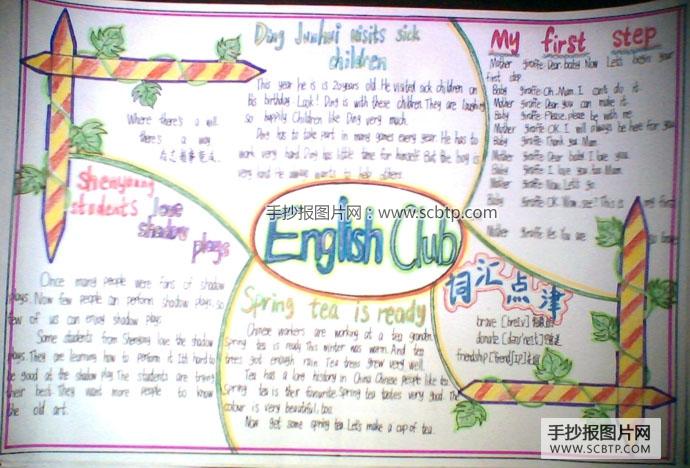 Ding Junhui visits sick
children
This year he is is 20 years old. He visited sick children on
his birthday. Look! Ding is with these children. They are laughing
so happily. Children like Ding very much.
Ding has to take part in many games every year. He has to
work very hard. Ding has little time for himself. But the boy is
very kind. He wants to help others.
My first step
Mother giraffe: Dear baby. Now Let's begin your
first step.
Baby giraffe: Oh, Mum. I can't do it.
Mother giraffe: Dear, you can make it.
Baby giraffe: Please, please be with me.
Mother giraffe: OK. I will always be here for you.
Baby giraffe: Thank you Mum.
Mother giraffe: Dear baby. I love you.
Baby giraffe: I love you too Mum.
Mother giraffe: Now, Let's go.
Baby giraffe: OK Mum, see? This is my first
Mother giraffe: Yes You are
Where there's a will,
there's a way
有志者事竟成
Shenyang
students love
shadow
plays
Once many people were fans of shadow
plays. Now few people can perform shadow plays, so
few of us can enjoy shadow plays.
Some students from Shenyang love the shadow
plays. They are learning how to perform it. It's hard to
be good at the shadow play. The students are trying
their best. They want more people to know
the old art.
手抄报图片网：www.scbtp.com
English Club
Spring tea is ready
Chinese workers are working at a tea garden.
Spring tea is ready. This winter was warm. And tea
trees got enough rain. Tea trees grew very well.
Tea has a long history in China. Chinese people like tea.
Spring tea is their favourite. Spring tea tastes very good. The
colour is very beautiful, too.
Now get some spring tea. Let's make a cup of tea.
词汇点津
brave [breiv]
donate
friendship
手抄报图片网
WWW.SCBTP.COM